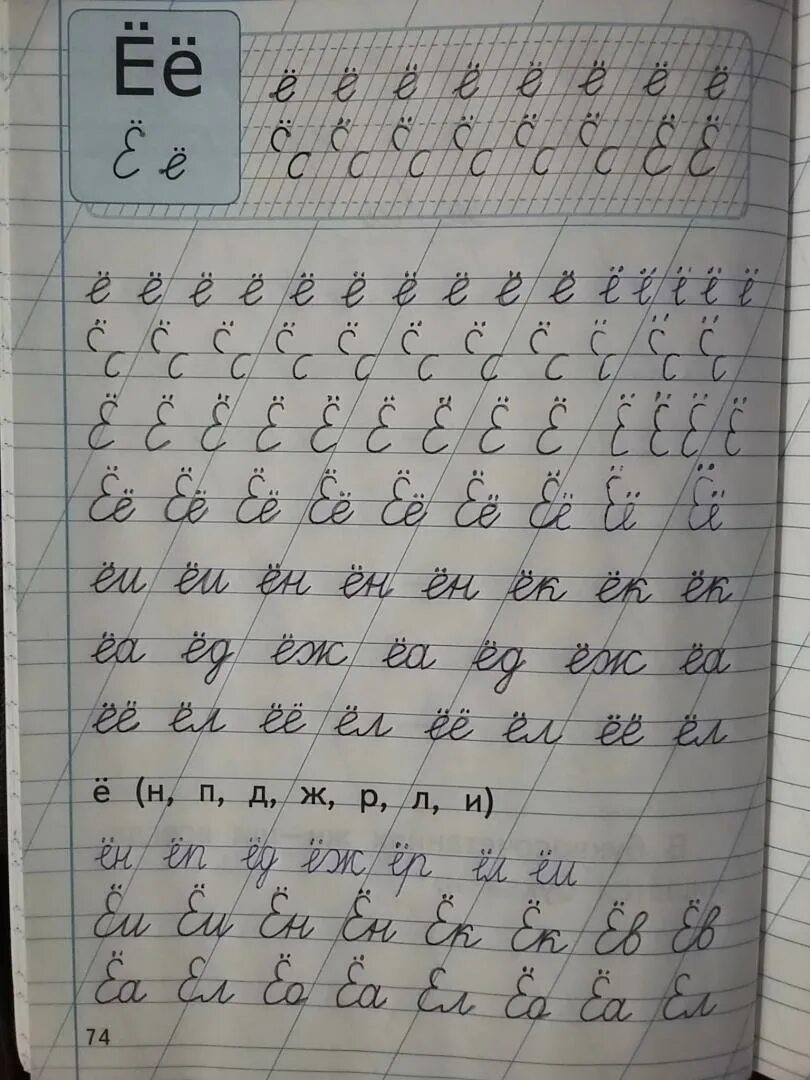 Ёё
Ё ё
ё ё ё ё ё ё ё ё
С̈с С̈с С̈с С̈с С̈с С̈с Ё Ё
ё ё ё ё ё ё ё ё ё ё ё ё ё ё ё
С̈с С̈с С̈с С̈с С̈с С̈с С̈с С̈с С̈с С̈с С̈с
Ё Ё Ё Ё Ё Ё Ё Ё Ё Ё Ё Ё Ё
Ёё Ёё Ёё Ёё Ёё Ёё Ёё Ёё Ёё
ёи ёи ён ён ён ёк ёк ёк
ёа ёд ёж ёа ёд ёж ёа
ёё ёл ёё ёл ёё ёл ёё ёл
ё (н, п, д, ж, р, л, и)
ён ёп ёд ёж ёр ёл ёи
Ёи Ёи Ён Ён Ёк Ёк Ёв Ёв
Ёа Ел Ёо Ёа Ел Ёо Ёа Ел
74